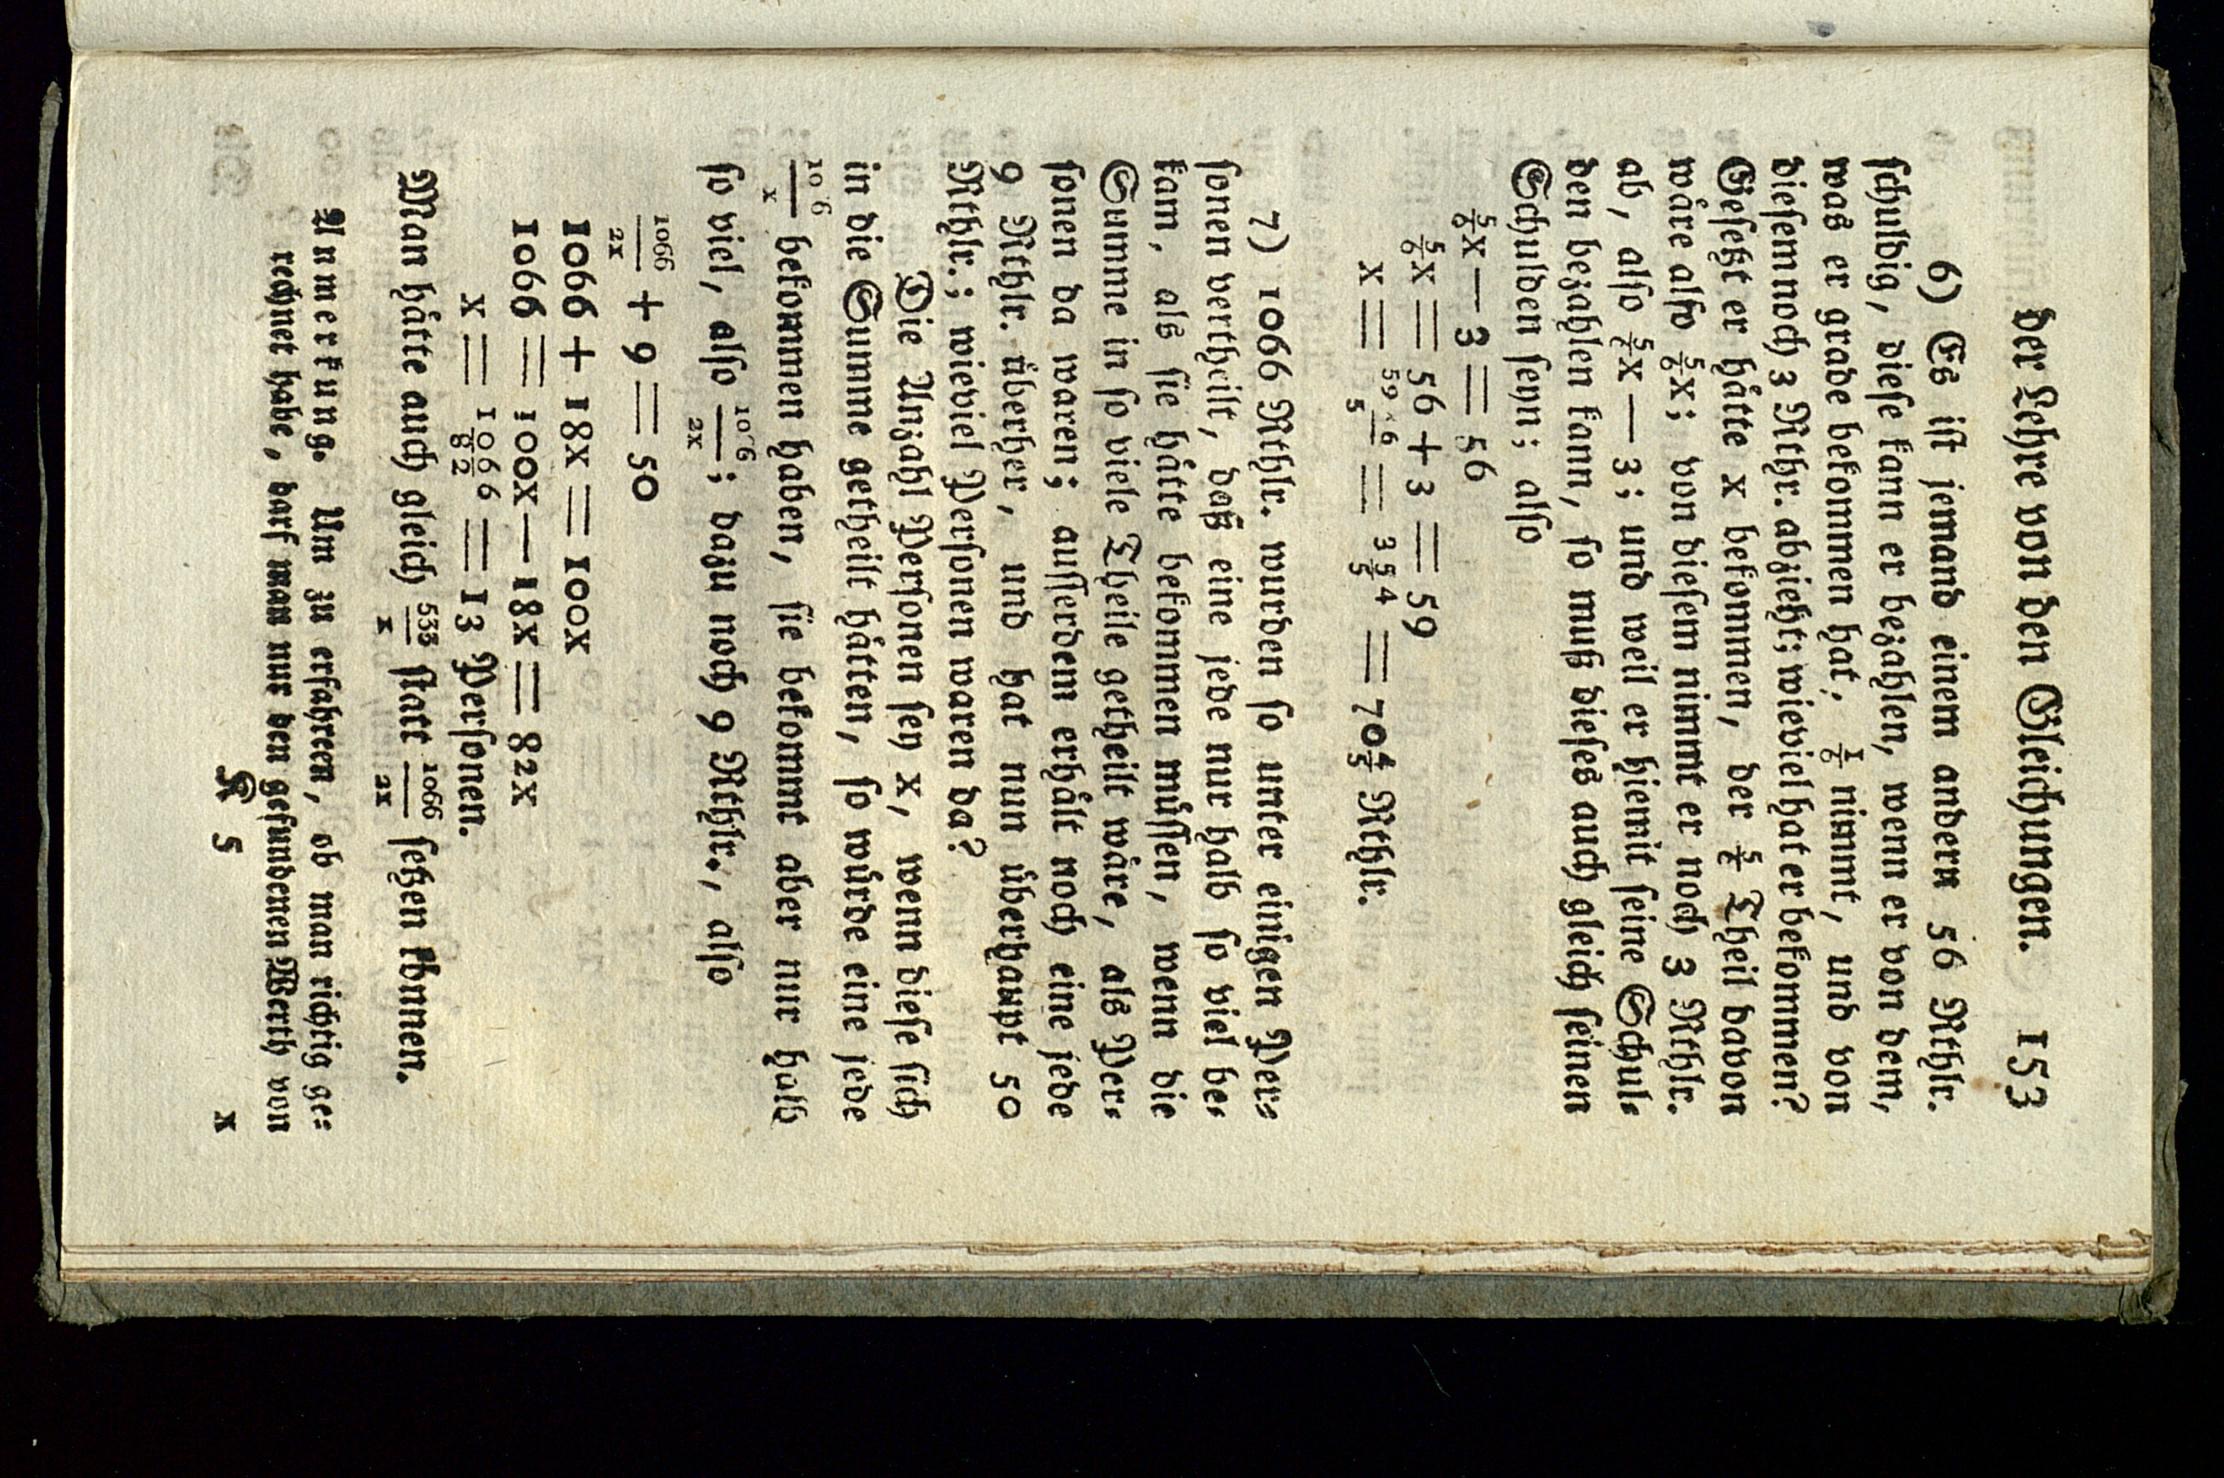 der Lehre von den Gleichungen. 153
6) Es iſt jemand einem andern 56 Rthlr.
ſchuldig, dieſe kann er bezahlen, wenn er von dem,
was er grade bekommen hat, 1/6 nimmt, und von
dieſem noch 3 Rthr. abzieht; wieviel hat er bekommen?
Geſetzt er hätte x bekommen, der 5/6 Theil davon
wäre alſo 5/6x; von dieſem nimmt er noch 3 Rthlr.
ab, alſo 5/6x — 3; und weil er hiemit ſeine Schul⸗
den bezahlen kann, ſo muß dieſes auch gleich ſeinen
Schulden ſeyn; alſo
5/6x — 3 = 56
5/6x = 56 + 3 = 59
x = 59·6/5 = 354/5 = 70 4/5 Rthlr.
7) 1066 Rthlr. wurden ſo unter einigen Per⸗
ſonen vertheilt, daß eine jede nur halb ſo viel be⸗
kam, als ſie hätte bekommen müſſen, wenn die
Summe in ſo viele Theile getheilt wäre, als Per⸗
ſonen da waren; auſſerdem erhält noch eine jede
9 Rthlr. überher, und hat nun überhaupt 50
Rthlr.; wieviel Perſonen waren da?
Die Anzahl Perſonen ſey x, wenn dieſe ſich
in die Summe getheilt hätten, ſo würde eine jede
10 6/x bekommen haben, ſie bekommt aber nur halb
ſo viel, alſo 10 6/2x; dazu noch 9 Rthlr., alſo
1066/2x + 9 = 50
1066 + 18x = 100x
1066 = 100x — 18x = 82x
x = 1066/82 = 13 Perſonen.
Man hätte auch gleich 533/x ſtatt 1066/2x ſetzen können.
Anmerkung. Um zu erfahren, ob man richtig ge⸗
rechnet habe, darf man nur den gefundenen Werth von
K 5 x